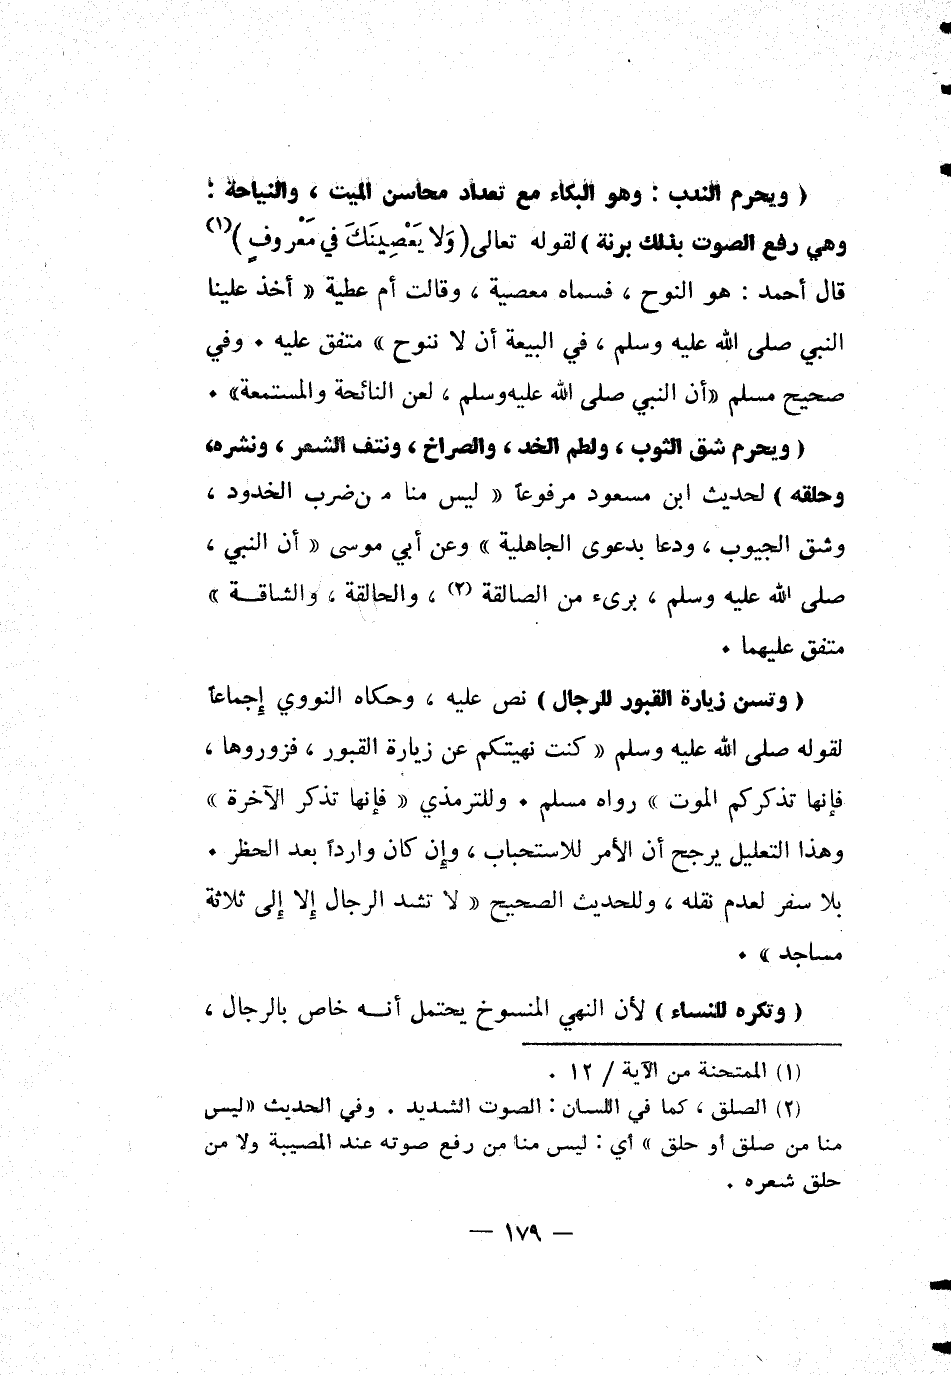 ( ويحرم الندب : وهو البكاء مع تعداد محاسن الميت ، والنياحة :
وهي رفع الصوت بذلك برنة ) لقوله تعالى ( وَلا يَعْصِينَكَ في مَعْروفٍ )(١)
قال أحمد : هو النوح ، فسماه معصية ، وقالت أم عطية « أخذ علينا
النبي صلى الله عليه وسلم ، في البيعة أن لا ننوح » متفق عليه . وفي
صحيح مسلم «أن النبي صلى الله عليه وسلم ، لعن النائحة والمستمعة» .
( ويحرم شق الثوب ، ولطم الخد ، والصراخ ، ونتف الشعر ، ونشره،
وحلقه ) لحديث ابن مسعود مرفوعاً « ليس منا من ضرب الخدود ،
وشق الجيوب ، ودعا بدعوى الجاهلية » وعن أبي موسى « أن النبي ،
صلى الله عليه وسلم ، برىء من الصالقة (٢) ، والحالقة ، والشاقــة »
متفق عليهما .
( وتسن زيارة القبور للرجال ) نص عليه ، وحكاه النووي إجماعاً
لقوله صلى الله عليه وسلم « كنت نهيتكم عن زيارة القبور ، فزوروها ،
فإنها تذكركم الموت » رواه مسلم . وللترمذي « فإنها تذكر الآخرة »
وهذا التعليل يرجح أن الأمر للاستحباب ، وإن كان وارداً بعد الحظر .
بلا سفر لعدم نقله ، وللحديث الصحيح « لا تشد الرحال إلا إلى ثلاثة
مساجد » .
( وتكره للنساء ) لأن النهي المنسوخ يحتمل أنــه خاص بالرجال ،
(١) الممتحنة من الآية / ١٢ .
(٢) الصلق ، كما في اللسان : الصوت الشديد . وفي الحديث «ليس
منا من صلق أو حلق » أي : ليس منا من رفع صوته عند المصيبة ولا من
حلق شعره .
— ١٧٩ —